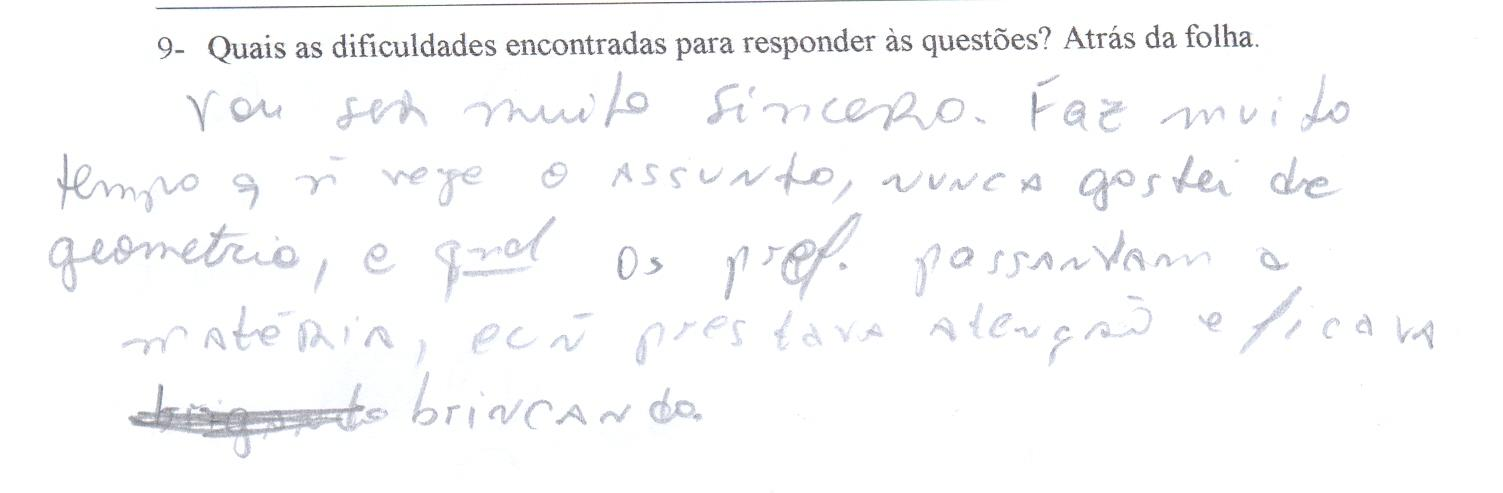 9- Quais as dificuldades encontradas para responder às questões? Atrás da folha.
Vou ser muito sincero. Faz muito
tempo q ñ veje o assunto, nunca gostei de
geometria, e qnd os prof. passavam a
matéria, eu ñ prestava atenção e ficava
brincando.